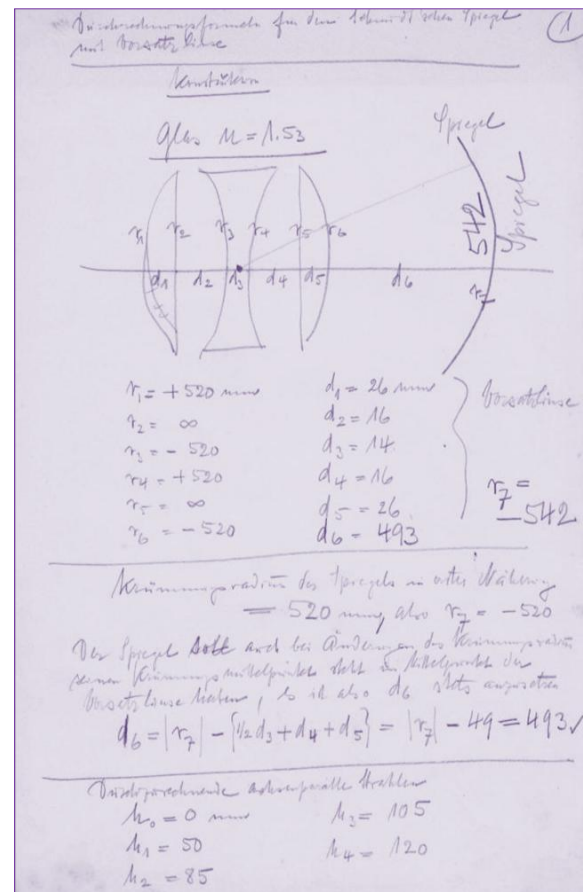 Durchrechnungsformeln für den Schmidt'schen Spiegel
mit Vorsatzlinse
1
Konstruktion
Glas n = 1.53
Spiegel
Spiegel
542
r1 r2 r3 r4 r5 r6
r7
d1 d2 d3 d4 d5 d6
r1 = +520 mm d1 = 26 mm
r2 = ∞ d2 = 16
r3 = -520 d3 = 14
r4 = +520 d4 = 16
r5 = ∞ d5 = 26
r6 = -520 d6 = 493
Vorsatzlinse
r7 =
-542
Krümmungsradius des Spiegels in erster Näherung
= 520 mm, also r7 = -520
Der Spiegel soll auch bei Änderungen des Krümmungsradius
seinen Krümmungsmittelpunkt stets im Mittelpunkt der
Vorsatzlinse haben, es ist also d6 stets anzusetzen
d6 = |r7| - {1/2 d3 + d4 + d5} = |r7| - 49 = 493 ✓
Durchzurechnende achsenparallele Strahlen
h0 = 0 mm h3 = 105
h1 = 50 h4 = 120
h2 = 85